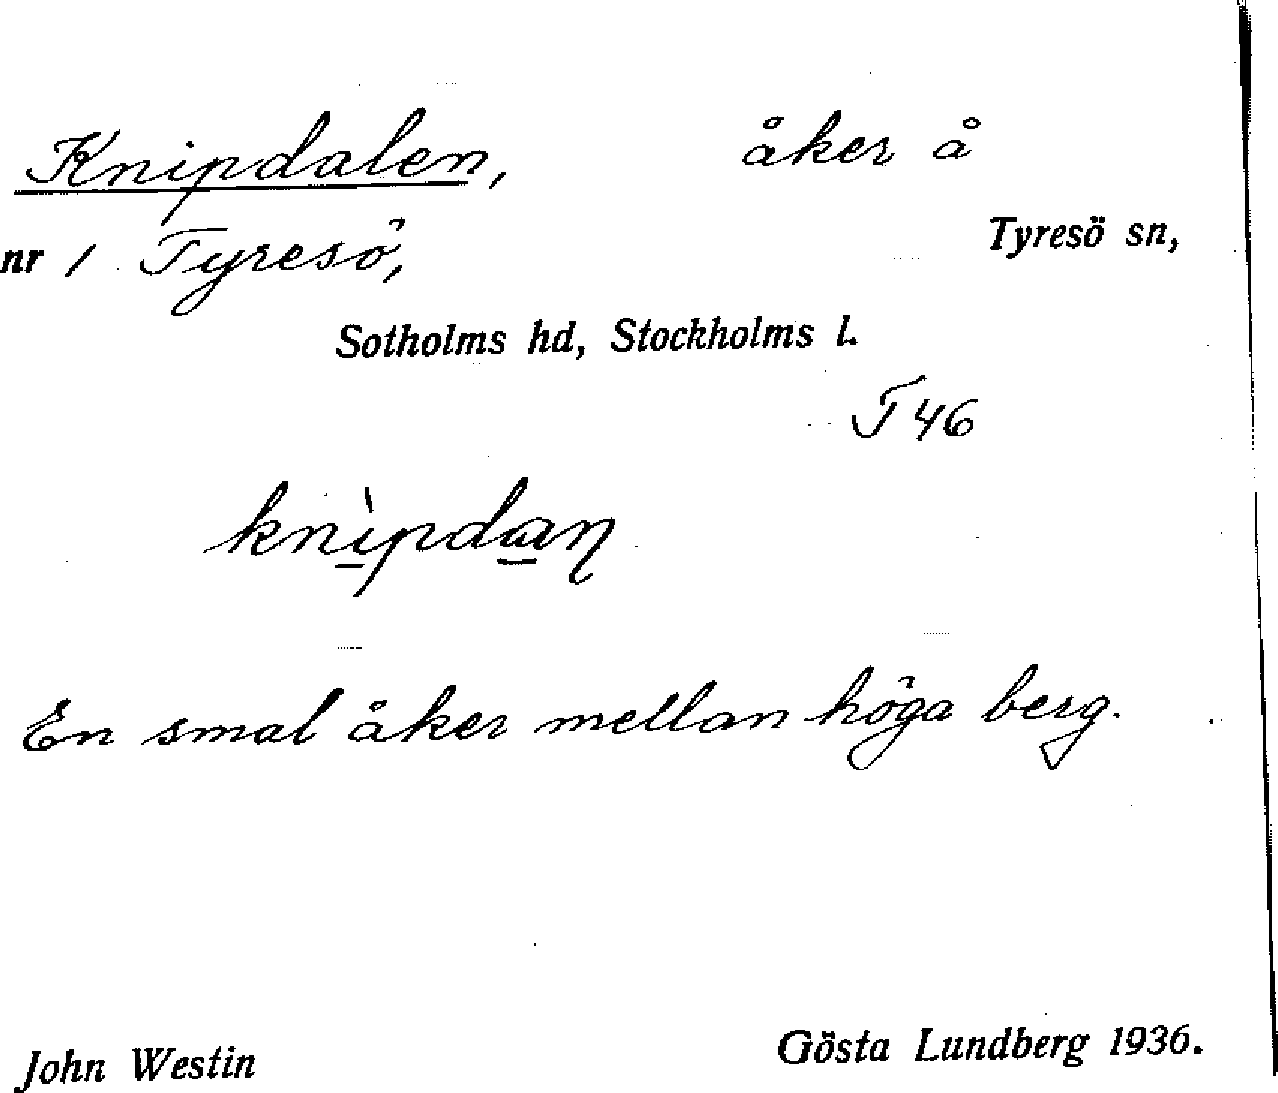 Knipdalen, åker å
Tyresö sn,
nr 1 Tyresö,
Sotholms hd, Stockholms l.
T 46
knìpdaŋ
En smal åker mellan höga berg.
John Westin Gösta Lundberg 1936.